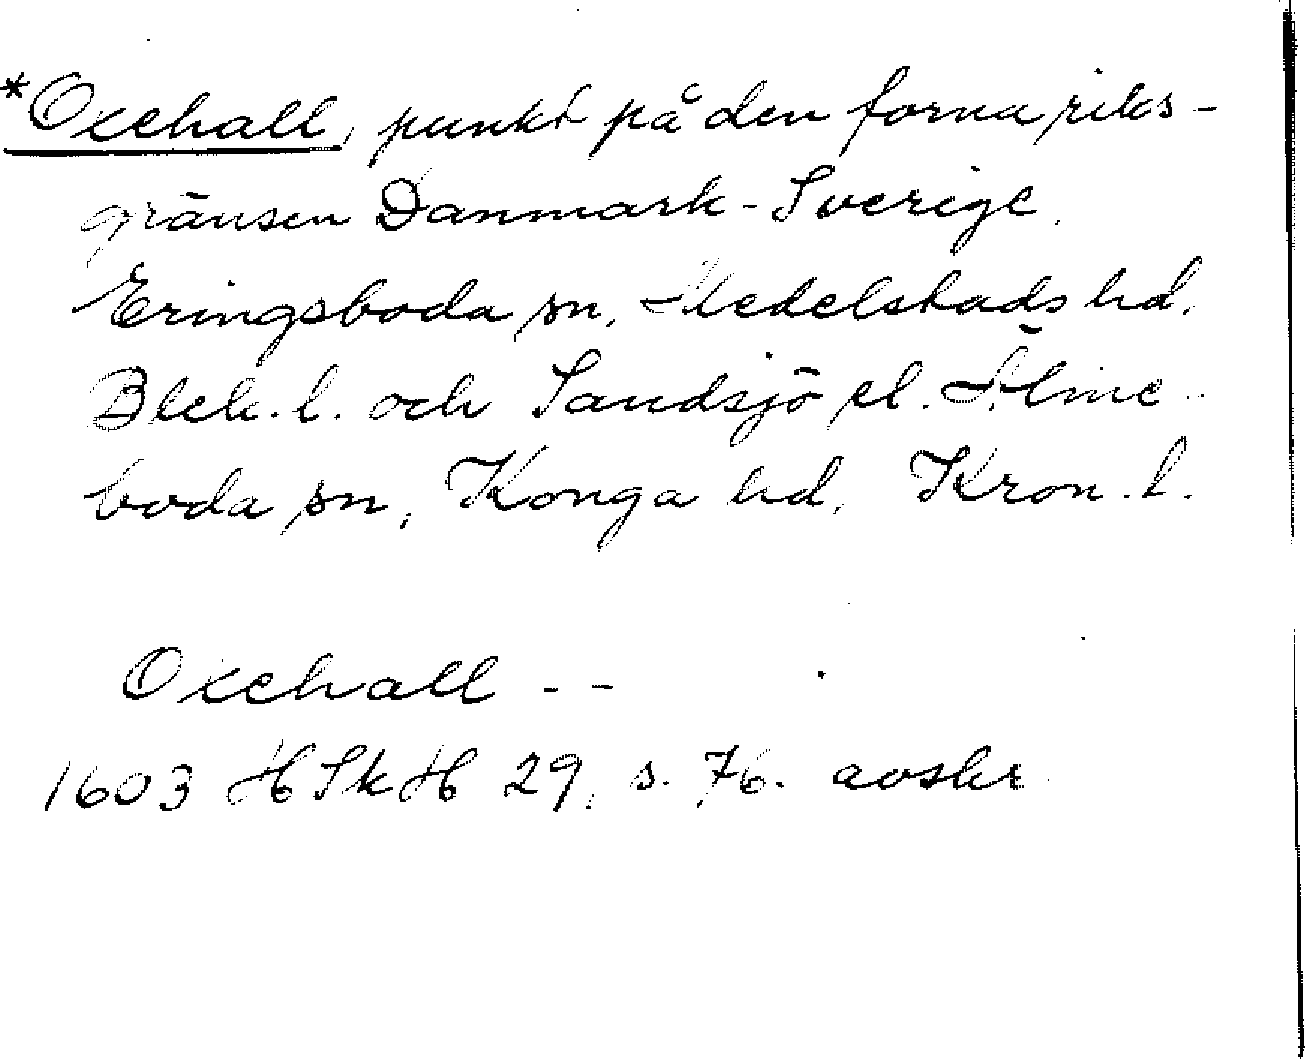 *Oxehall, punkt på den forna riks-
gränsen Danmark-Sverige.
Eringsboda sn, Medelstads hd,
Blek. l. och Sandsjö el. Älme-
boda sn, Konga hd, Kron. l.
Oxehall - -
1603 HSkH 29, s. 76. avskr